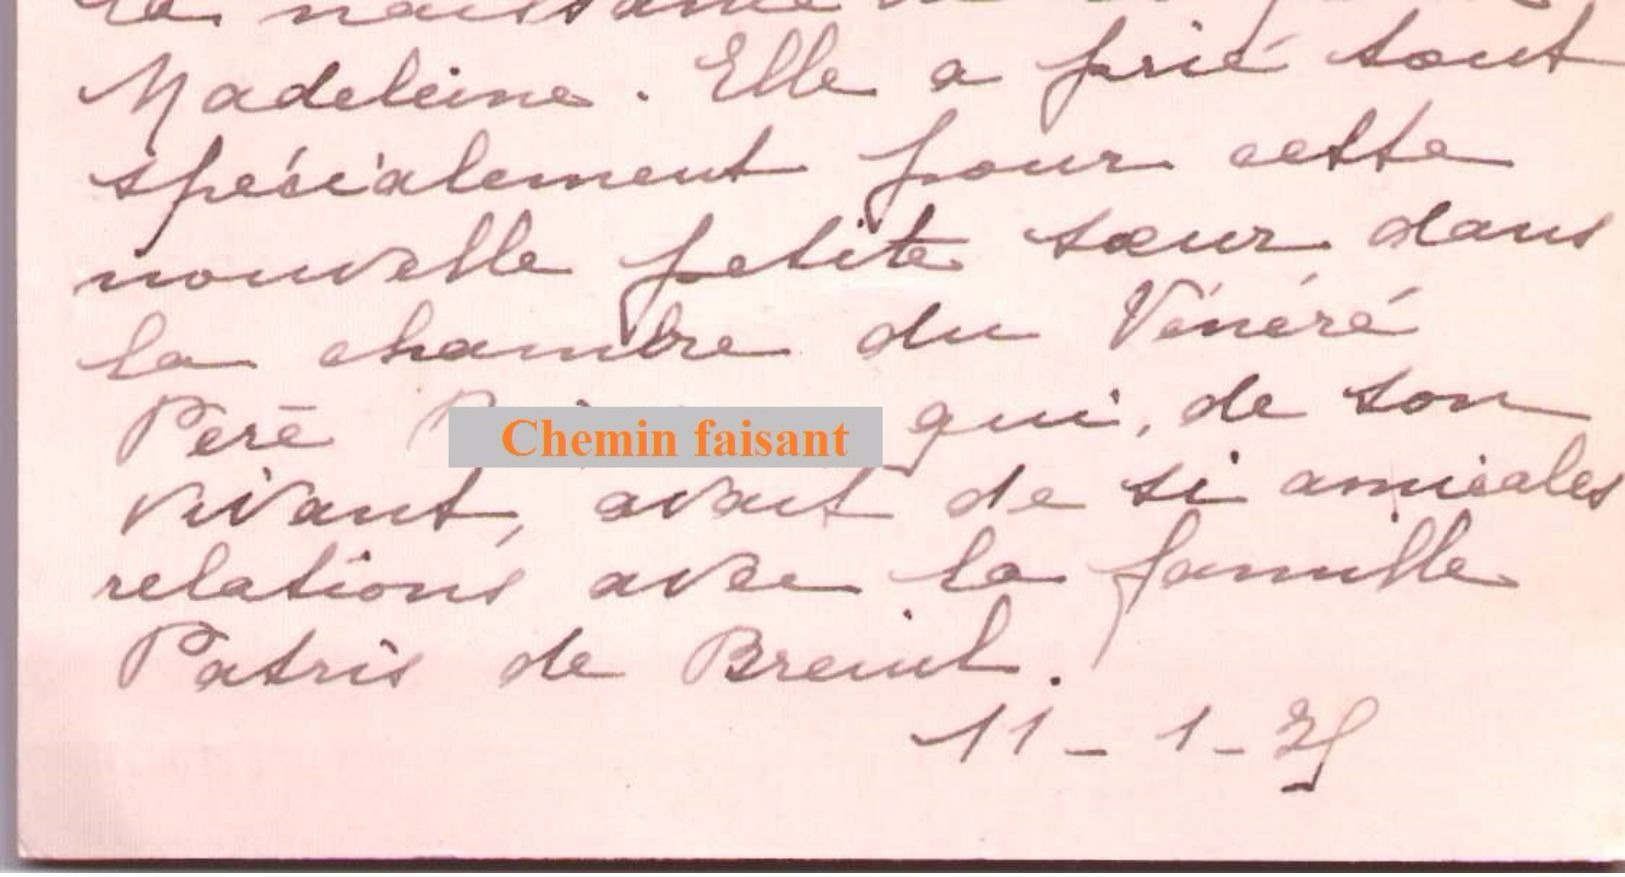 la naissance de
Madeleine. Elle a prié tout
spécialement pour cette
nouvelle petite sœur dans
la chambre du Vénéré
Père Chemin faisant qui, de son
vivant, avait de si amicales
relations avec la famille
Patris de Breuil.
11-1-25